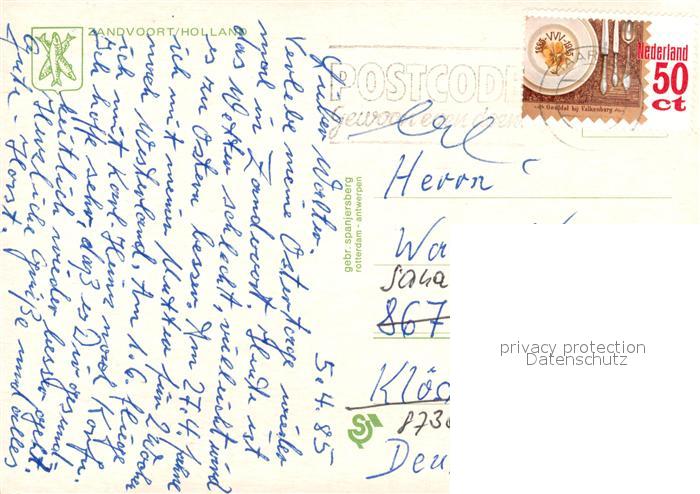 ZANDVOORT/HOLLAND
5.4.85
Guter Walter.
Verlebe meine Ostertage wieder
mal in Zandvoort. Heute ist
das Wetter schlecht, vielleicht wird
es zu Ostern besser. Am 27.4. fahre
ich mit meiner Mutter für 2 Wochen
nach Westerland. Am 1.6. fliege
ich mit Karl Heinz nach Korfu.
Ich hoffe sehr daß es Dir gesund-
heitlich wieder besser geht.
Herzliche Grüße und alles
Gute Horst.
gebr. spanjersberg
rotterdam - antwerpen
POSTCODE
gewoon even doen
1885 VVV 1985
Geuldal bij Valkenburg
Nederland
50
ct
Herrn
Wa
867
Klö
8730
Deu
privacy protection
Datenschutz